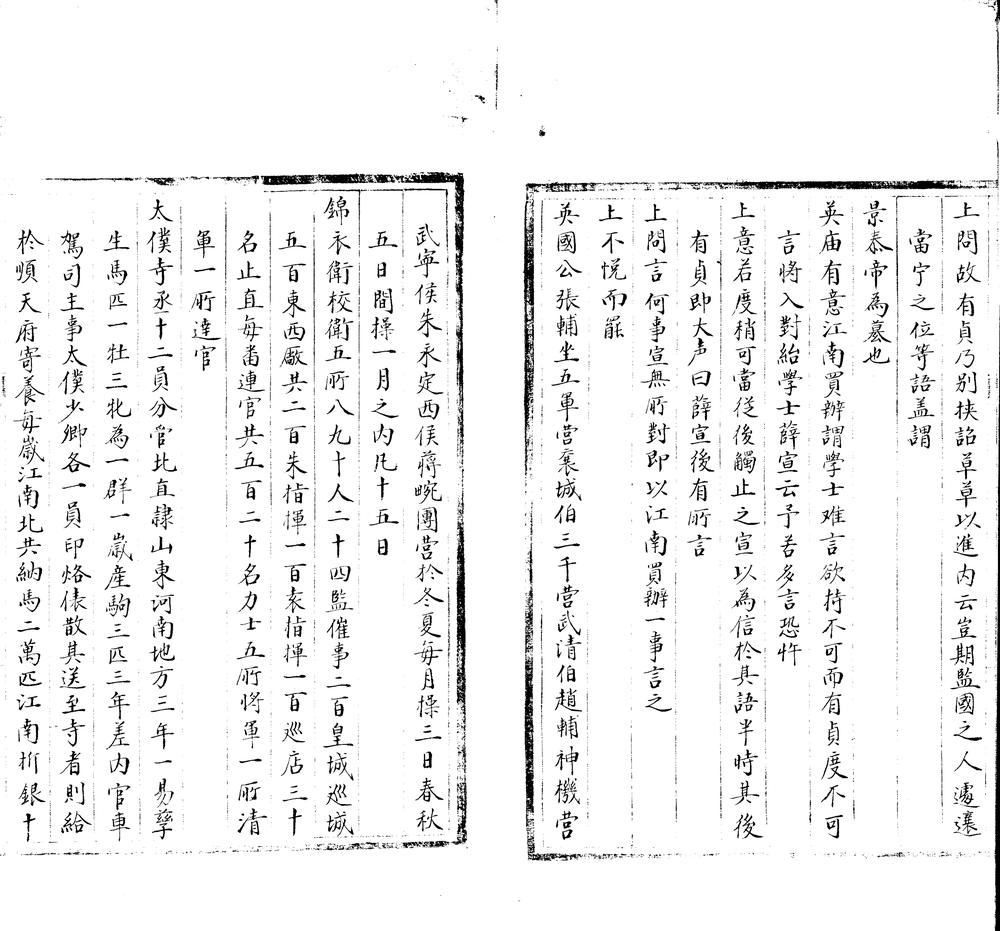 上問故有貞乃別挾詔草草以進内云豈期監國之人遽遷
當宁之位等語盖謂
景泰帝為慕也
英庙有意江南買辦謂學士难言欲持不可而有貞度不可
言將入對紿學士薛宣云予若多言恐忤
上意若度稍可當從後觸止之宣以為信於其語半時其後
有貞即大声曰薛宣後有所言
上問言何事宣無所對即以江南買辦一事言之
上不悦而罷
英國公張輔坐五軍营襄城伯三千营武清伯趙輔神機营
武寧侯朱永定西侯蒋畹團营於冬夏每月操三日春秋
五日間操一月之内凡十五日
錦衣衛校衛五所八九十人二十四監催事二百皇城巡城
五百東西厰共二百朱指揮一百袁指揮一百巡店三十
名止直每畨連官共五百二十名力士五所将軍一所清
軍一所達官
太僕寺丞十二員分管北直隸山東河南地方三年一易孳
生馬匹一牡三牝為一群一歲産駒三匹三年差内官車
駕司主事太僕少卿各一員印烙俵散其送至寺者則給
於順天府寄養每歲江南北共納馬二萬匹江南折銀十